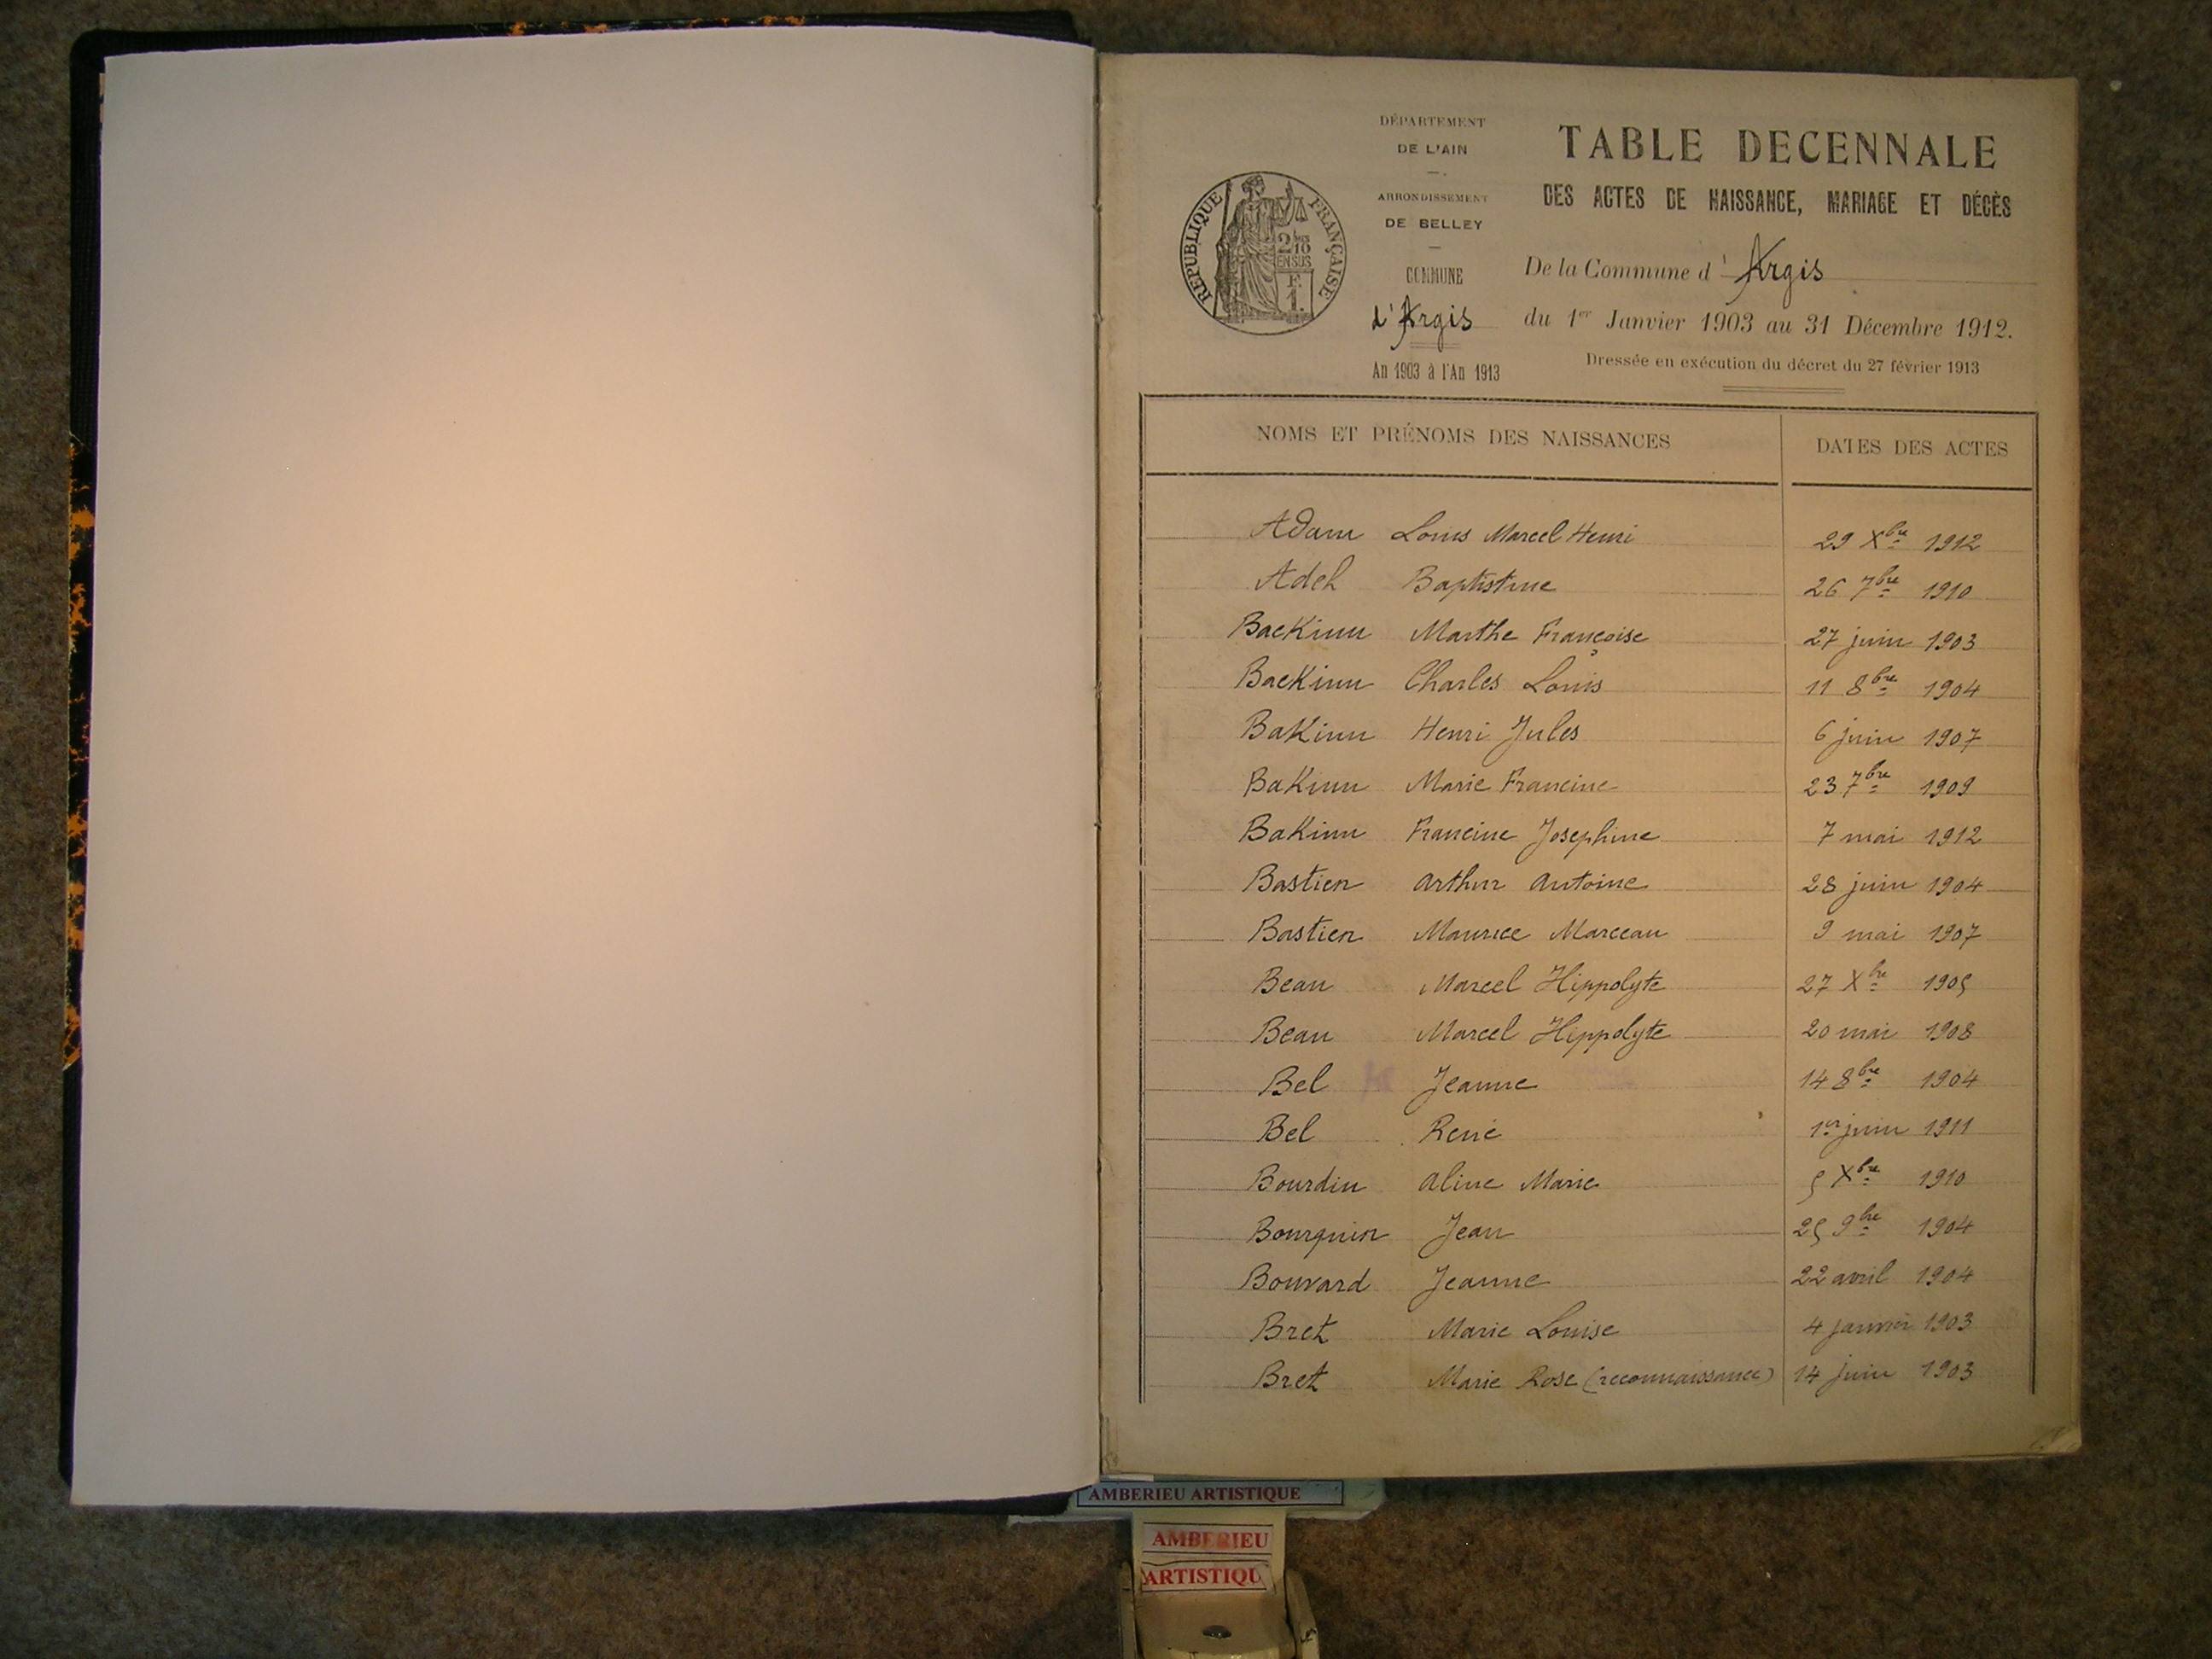 DÉPARTEMENT
DE L'AIN
ARRONDISSEMENT
DE BELLEY
COMMUNE
d'Argis
An 1903 à l'An 1913
RÉPUBLIQUE FRANÇAISE
TABLE DECENNALE
DES ACTES DE NAISSANCE, MARIAGE ET DÉCÈS
De la Commune d' Argis
du 1er Janvier 1903 au 31 Décembre 1912.
Dressée en exécution du décret du 27 février 1913
NOMS ET PRÉNOMS DES NAISSANCES DATES DES ACTES
Adam Louis Marcel Henri 29 Xbre 1912
Adeh Baptistine 26 7bre 1910
BaeKinn Marthe Françoise 27 juin 1903
BaeKinn Charles Louis 11 8bre 1904
BaKinn Henri Jules 6 juin 1907
BaKinn Marie Francine 23 7bre 1909
BaKinn Francine Josephine 7 mai 1912
Bastien Arthur Antoine 28 juin 1904
Bastien Maurice Marceau 9 mai 1907
Beau Marcel Hippolyte 27 Xbre 1905
Beau Marcel Hippolyte 20 mai 1908
Bel Jeanne 14 8bre 1904
Bel René 1er juin 1911
Bourdin Aline Marie 5 Xbre 1910
Bourquin Jean 25 9bre 1904
Bouvard Jeanne 22 avril 1904
Bret Marie Louise 4 janvier 1903
Bret Marie Rose (reconnaissance) 14 juin 1903
AMBERIEU ARTISTIQUE
AMBERIEU
ARTISTIQU